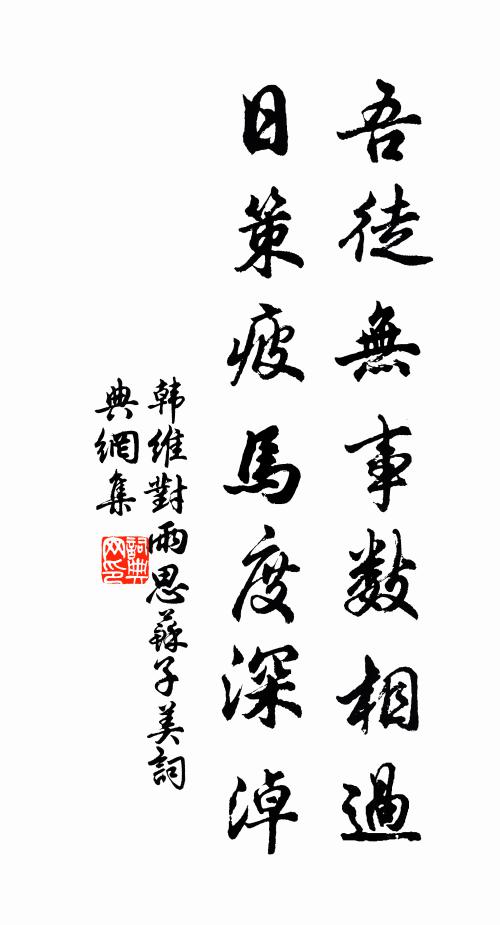 吾徒無事數相過
日策疲馬度深淖
韩維對雨思蘇子美詞
典網集
詞典
网印